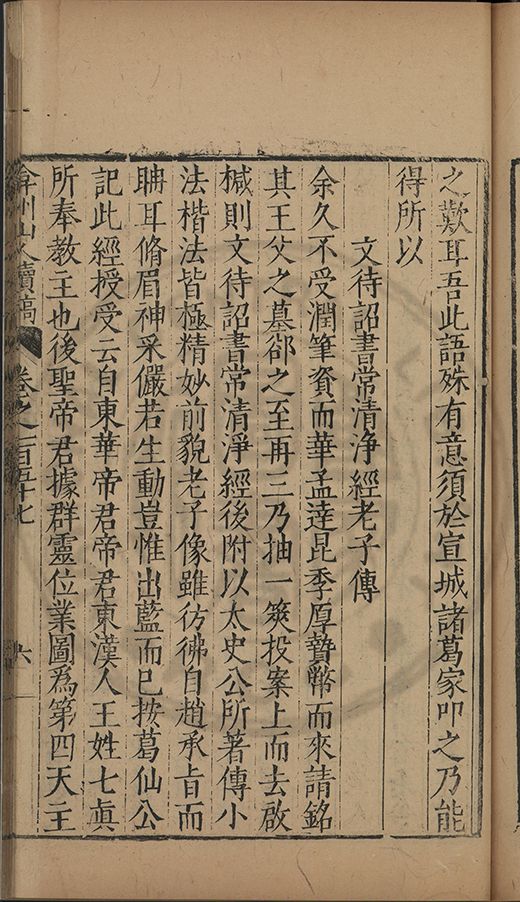 之歎耳吾此語殊有意須於宣城諸葛家叩之乃能
得所以
文待詔書常清淨經老子傳
余久不受潤筆資而華孟達昆季厚贄幣而來請銘
其王父之墓郤之至再三乃抽一筴投案上而去啟
椷則文待詔書常清淨經後附以太史公所著傳小
法楷法皆極精妙前貌老子像雖彷彿自趙承旨而
聃耳脩眉神采儼若生動豈惟出藍而已按葛仙公
記此經授受云自東華帝君帝君東漢人王姓七眞
所奉教主也後聖帝君據群靈位業圖爲第四天主
弇州山人續稿
卷之一百五十七
六